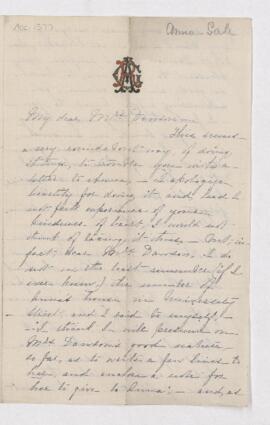 Anna Gale
My dear Mrs Dawson
This seems
a very roundabout way of doing
things, to trouble you with a
letter to Anna, - I apologise
heartily for doing it and had I
not past experience of your
kindness of heart, I would not
think of taking it thus. - But, in
fact, dear Mrs Dawson, I do
not in the least remember (if I
ever knew,) the number of
Anna's house in University
Street and I said to myself, -
- I think I will presume on
Mrs Dawson's good nature
so far, as to write a few lines to
her, and enclose a note for
her to give to Anna! - and, as